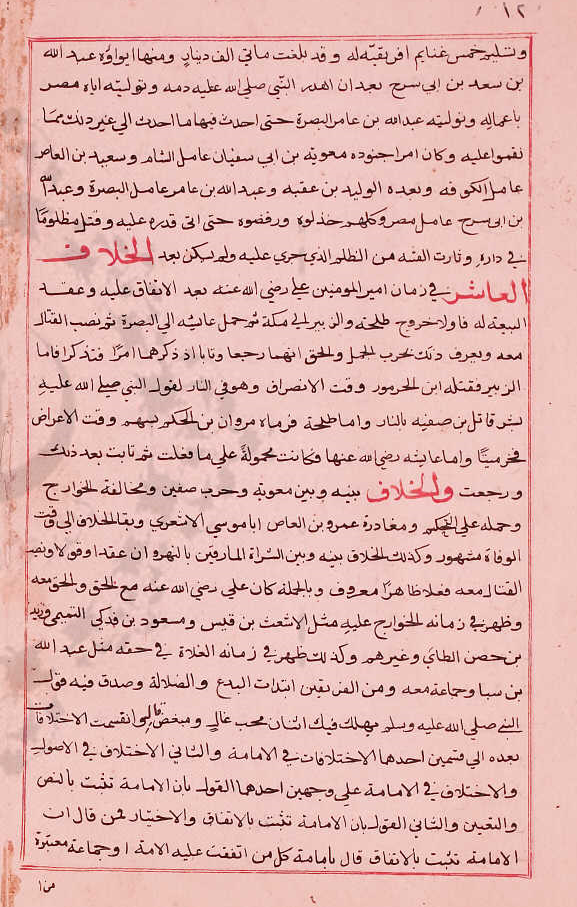 ١٢
وتسليم خمس غنايم افريقيه له وقد بلغت ماتي الف دينار ومنها ايواؤه عبد الله
بن سعد بن ابي سرح بعد ان اهدر النبي صلي الله عليه دمه وتوليته اياه مصر
باعماله وتوليته عبد الله بن عامر البصرة حتى احدث فيها ما احدث الي غير ذلك مما
نقموا عليه وكان امرا جنوده معوية بن ابي سفيان عامل الشام وسعيد بن العاص
عامل الكوفه وبعده الوليد بن عقبه وعبد الله بن عامر عامل البصرة وعبد الله
بن ابي سرح عامل مصر وكلهم خذلوه ورفضوه حتى اتى قدره عليه وقتل مظلومًا
في داره وثارت الفتنه من الظلم الذي جري عليه ولم يسكن بعد الخلاف
العاشر في زمان امير المومنين علي رضي الله عنه بعد الاتفاق عليه وعقد
البيعة له فاولا خروج طلحته والزبير الي مكة ثم حمل عايشه الي البصرة ثم نصب القتال
معه ويعرف ذلك بحرب الجمل والحق انهما رجعا وتابا اذ ذكرهما امرًا فتذكرا فاما
الزبير فقتله ابن الجرموز وقت الانصراف وهو في النار لقول النبي صلي الله عليه
بشر قاتل بن صفيه بالنار واما طلحة فرماه مروان بن الحكم بسهم وقت الاعراض
فخر ميتًا واما عايشه رضي الله عنها فكانت محمولةً علي ما فعلت ثم تابت بعد ذلك
ورجعت والخلاف بينه وبين معوية وحرب صفين ومخالفة الخوارج
وحمله علي التحكيم ومغادرة عمرو بن العاص ابا موسي الاشعري وبقا الخلاف الي وقت
الوفاة مشهور وكذلك الخلاف بينه وبين الشراة المارقين بالنهروان عقدا وقولا ونصب
القتال معه فعلا ظاهرًا معروف وبالجملة كان علي رضي الله عنه مع الحق والحق معه
وظهر في زمانه الخوارج عليه مثل الاشعث بن قيس ومسعود بن فدكي التميمي وزيد
بن حصن الطاي وغيرهم وكذلك ظهر في زمانه الغلاة في حقه مثل عبد الله
بن سبا وجماعة معه ومن الفريقين ابتدات البدع والضلالة وصدق فيه قول
النبي صلي الله عليه وسلم يهلك فيك اثنان محب غالي ومبغض قالي وانقسمت الاختلافات
بعده الي قسمين احدها الاختلافات في الامامة والثاني الاختلاف في الاصول
والاختلاف في الامامة علي وجهين احدها القول بان الامامة تثبت بالنص
والتعيين والثاني القول بان الامامة تثبت بالاتفاق والاختيار فمن قال ان
الامامة تثبت بالاتفاق قال بامامة كل من اتفقت عليه الامة او جماعة معتبرة
من ا